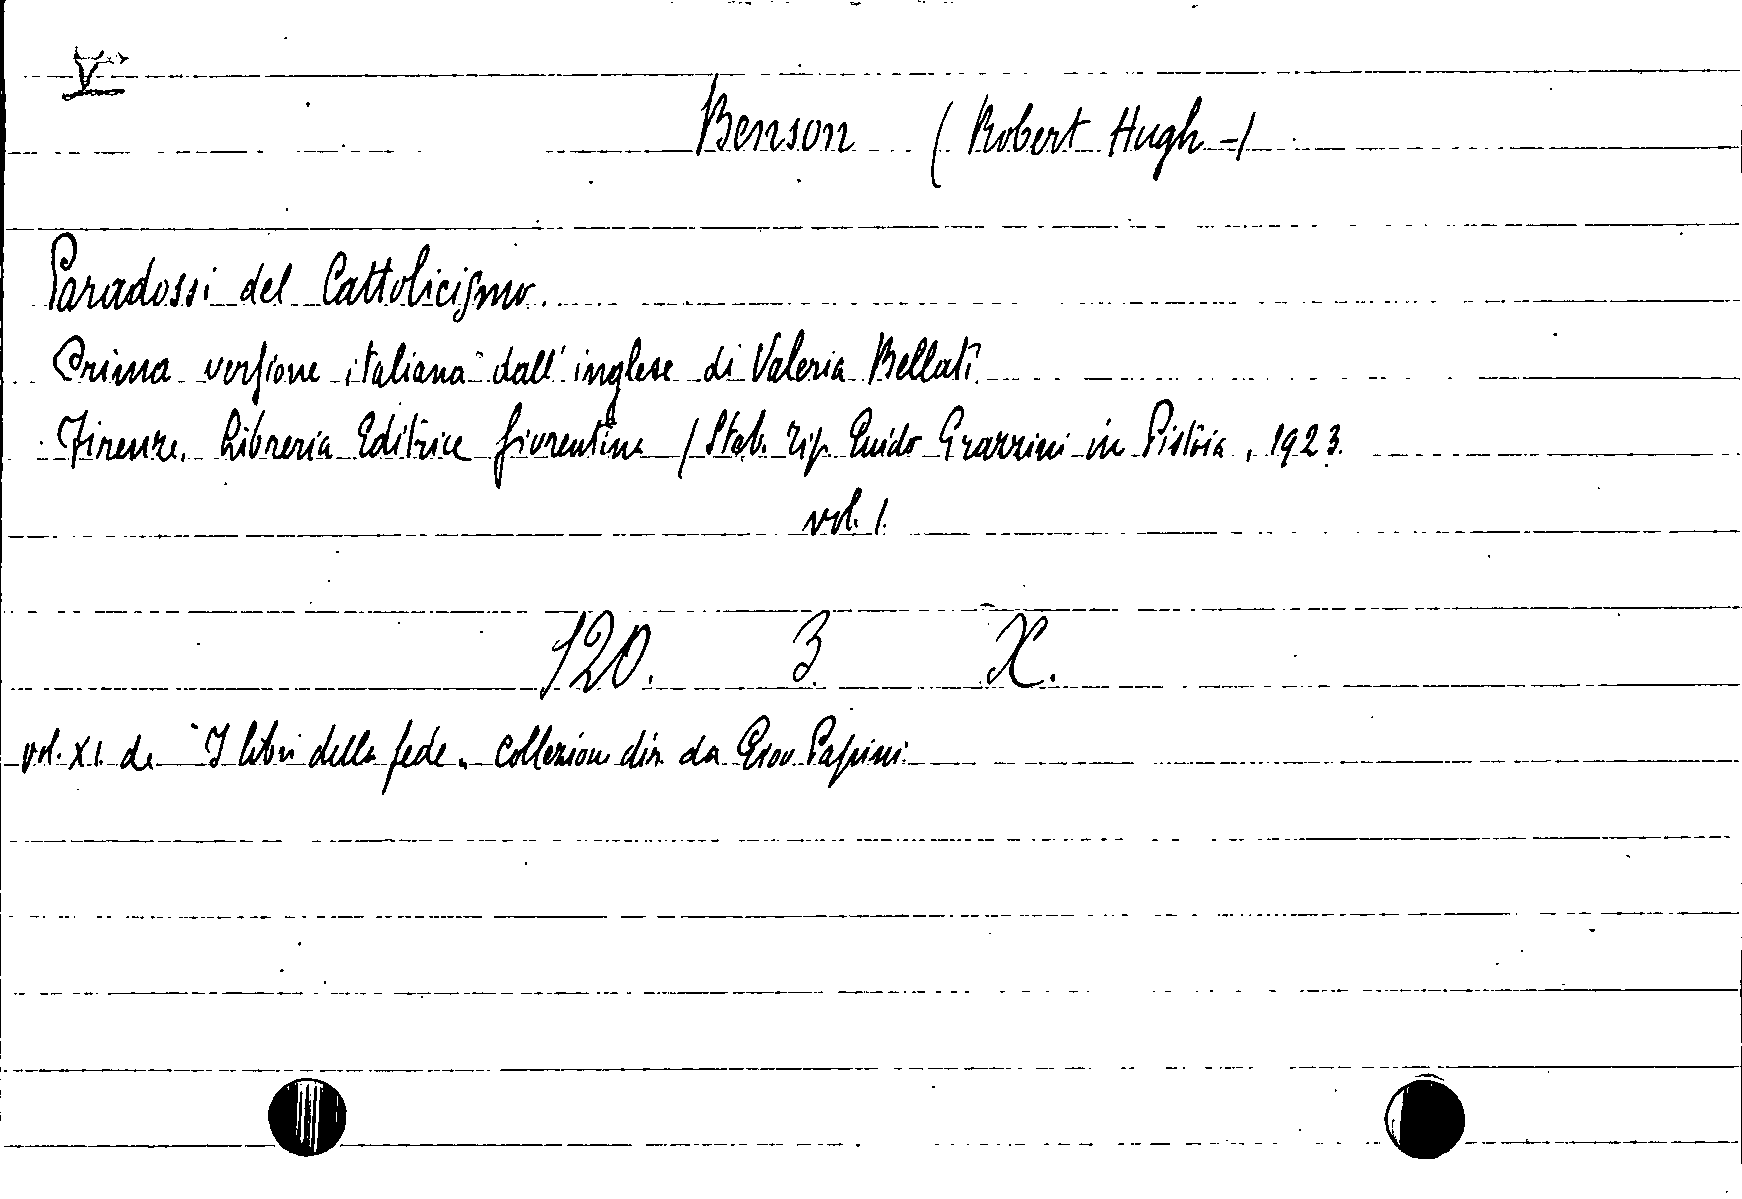 V
Benson (Robert Hugh -)
Paradossi del Cattolicismo.
Prima versione italiana dall' inglese di Valeria Bellati
Firenze. Libreria Editrice fiorentina (Stab. Tip. Guido Grazzini in Pistoia, 1923.
vol. 1.
120. 3. X.
vol. XI. de "I libri della fede" collezione dir. da Giov. Papini